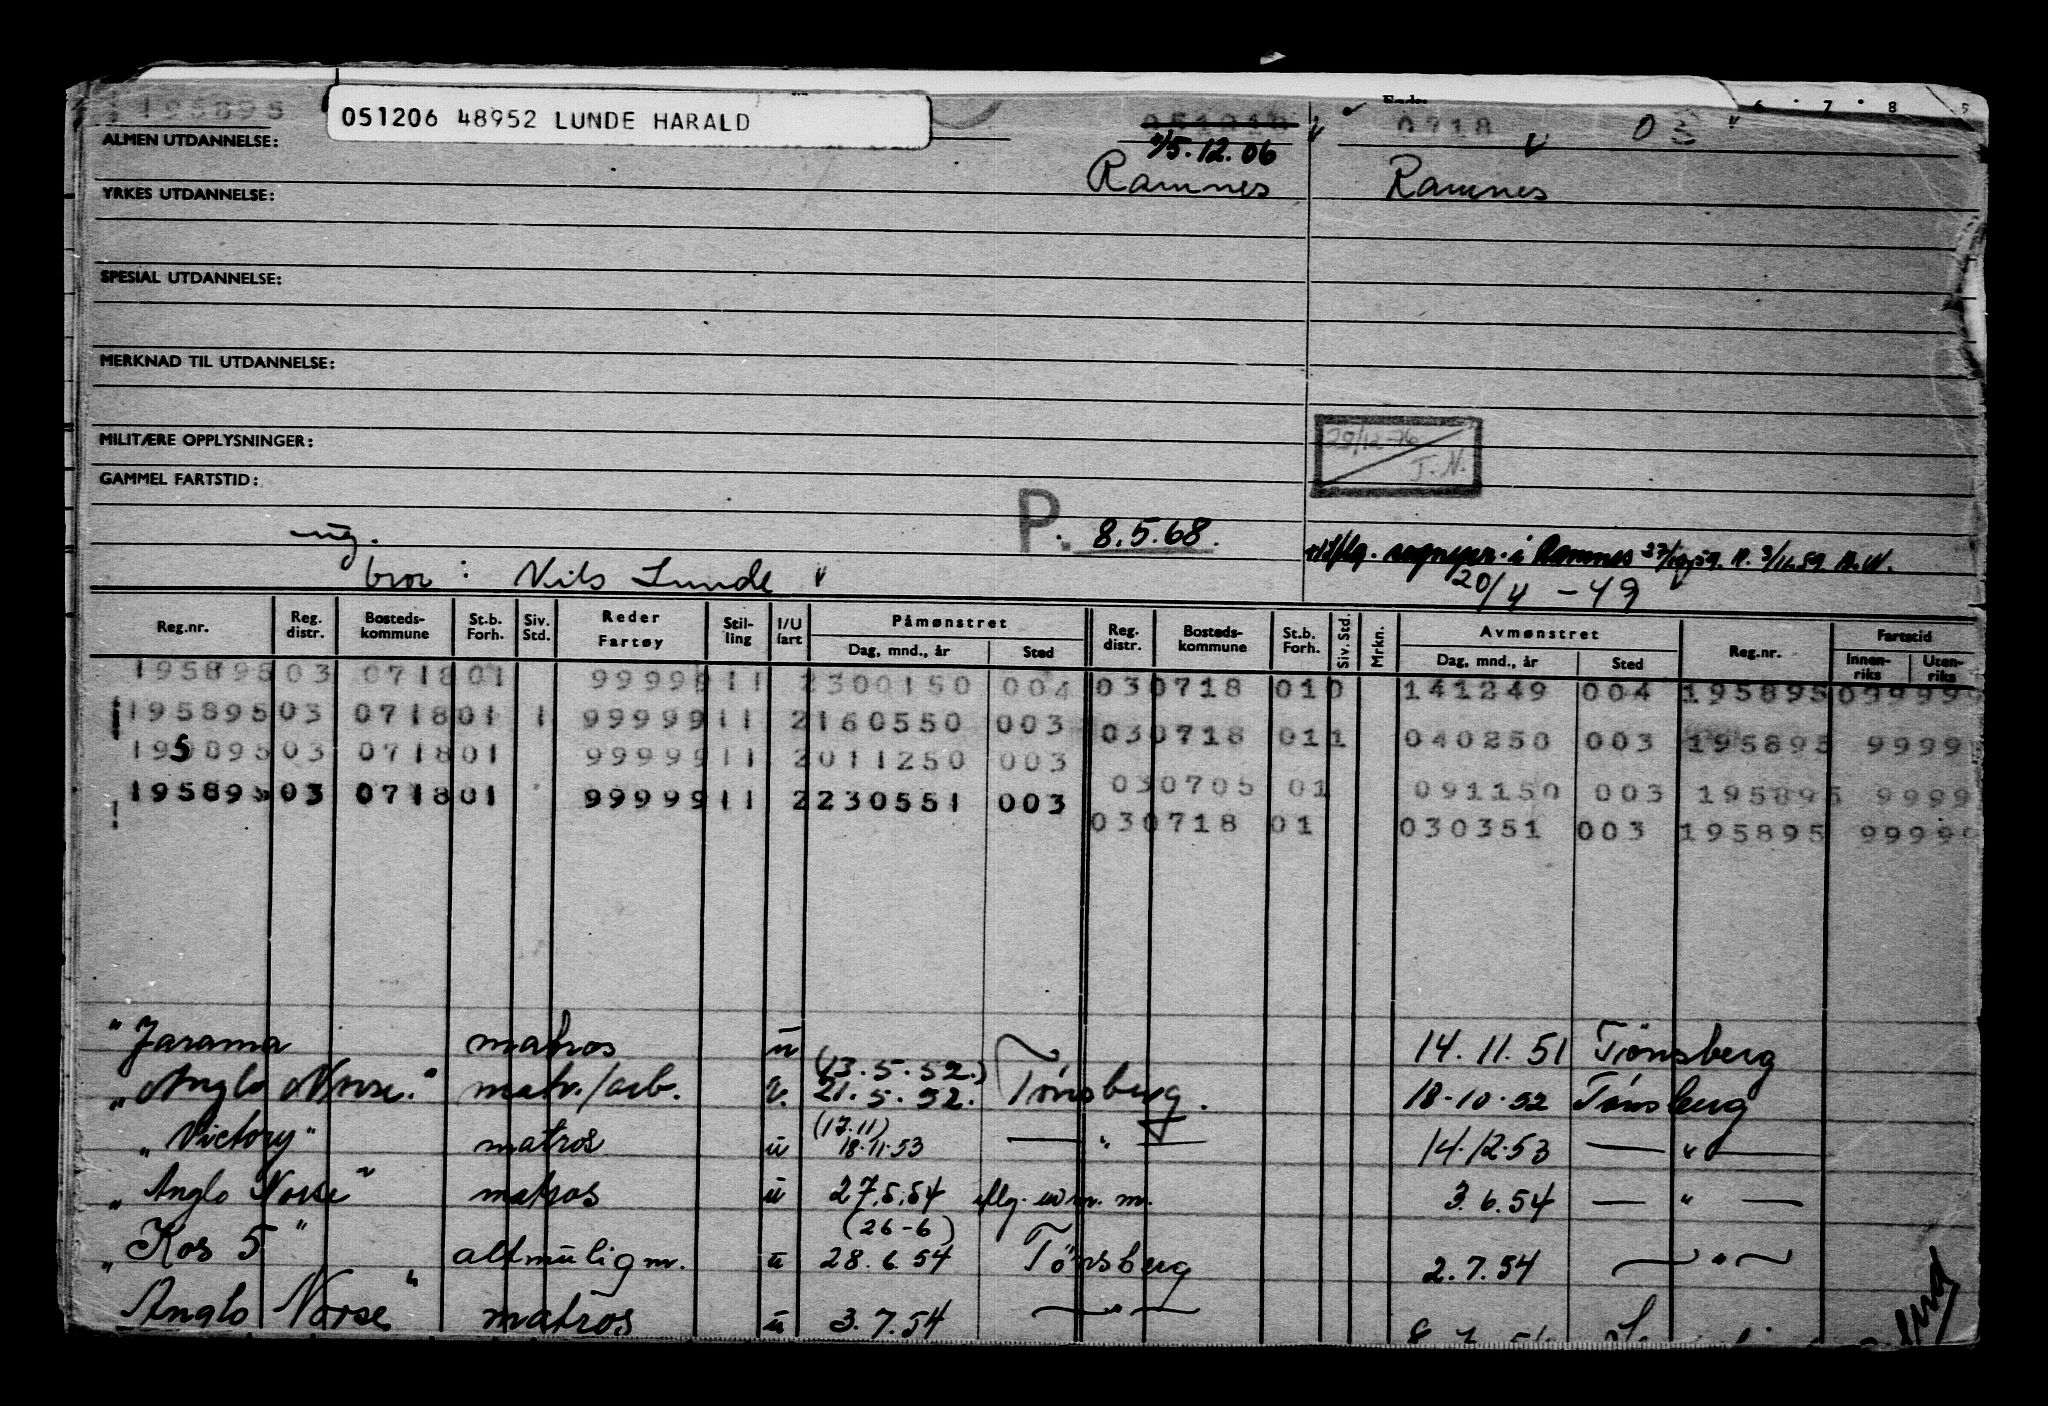 195895
051206 48952 LUNDE HARALD
0718 03
6 7 8
ALMEN UTDANNELSE:
5.12.06
Ramnes Ramnes
YRKES UTDANNELSE:
SPESIAL UTDANNELSE:
MERKNAD TIL UTDANNELSE:
MILITÆRE OPPLYSNINGER:
T. N.
GAMMEL FARTSTID:
ug. P. 8.5.68.
i Ramnes
bror : Nils Lunde 20/4 - 49
Reg.nr. Reg. distr. Bosteds-kommune St.b. Forh. Siv. Std. Reder Fartøy Stil-ling I/U fart Påmønstret Dag, mnd., år Sted Reg. distr. Bosteds-kommune St.b. Forh. Siv. Std. Mrkn. Avmønstret Dag, mnd., år Sted Reg.nr. Fartstid Innen-riks Uten-riks
195895 03 0718 01 99999 11 2 300150 004 03 0718 01 0 141249 004 195895 09999
195895 03 0718 01 1 99999 11 2 160550 003 03 0718 01 1 040250 003 195895 9999
195895 03 0718 01 99999 11 2 011250 003 03 0705 01 091150 003 195895 9999
195895 03 0718 01 99999 11 2 230551 003 03 0718 01 030351 003 195895 9999
"Jarama matros u 14.11.51 Tønsberg
(13.5.52.)
"Anglo Norse." matr./arb. u. 21.5.52. Tønsberg. 18.10.52 Tønsberg
(17.11)
"Victory" matros u 18.11.53 — " — 14.12.53 — " —
"Anglo Norse" matros u 27.5.54 m. 3.6.54 — " —
(26-6)
"Kos 5" altmuligm. u 28.6.54 Tønsberg 2.7.54 — " —
Anglo Norse" matros u 3.7.54 — " —